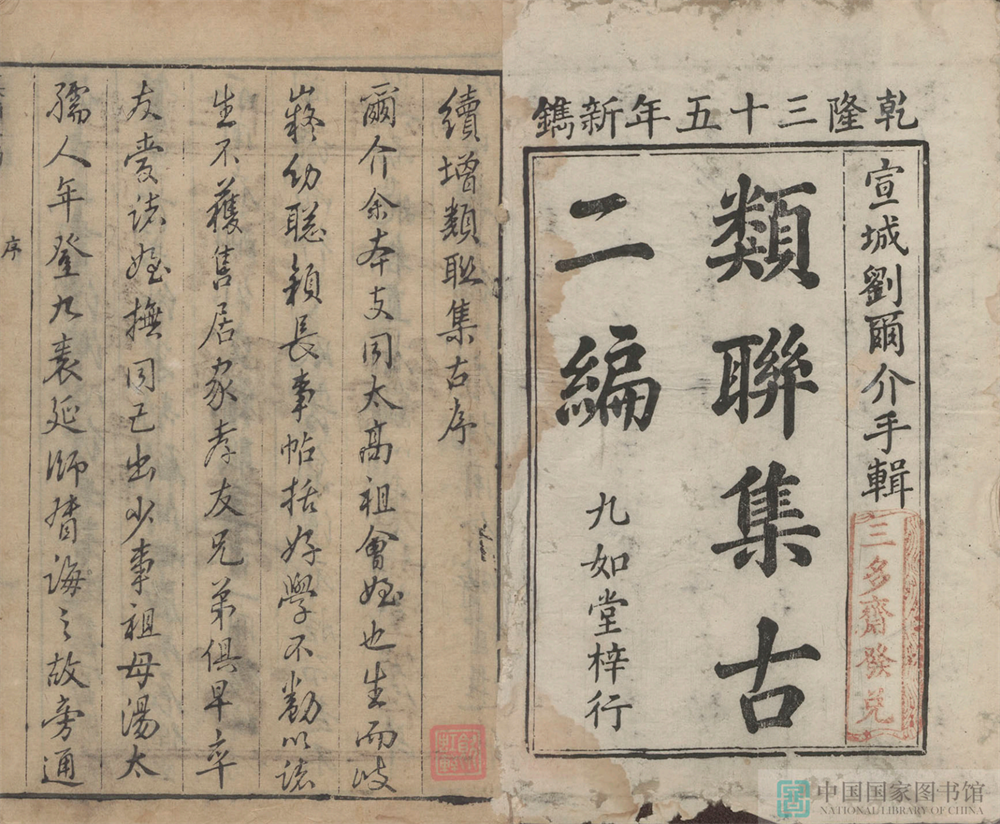 乾隆三十五年新鐫
宣城劉爾介手輯
三多齋發兌
類聯集古
二編
九如堂梓行
續增類聯集古序
爾介余本支同太高祖會姪也生而岐
嶷幼聰穎長事帖括好學不勌以諸
生不獲售居家孝友兄弟俱早卒
友愛諸姪撫同己出少事祖母湯太
孺人年登九袠延師督誨之故旁通
序
中国国家图书馆
NATIONAL LIBRARY OF CHINA